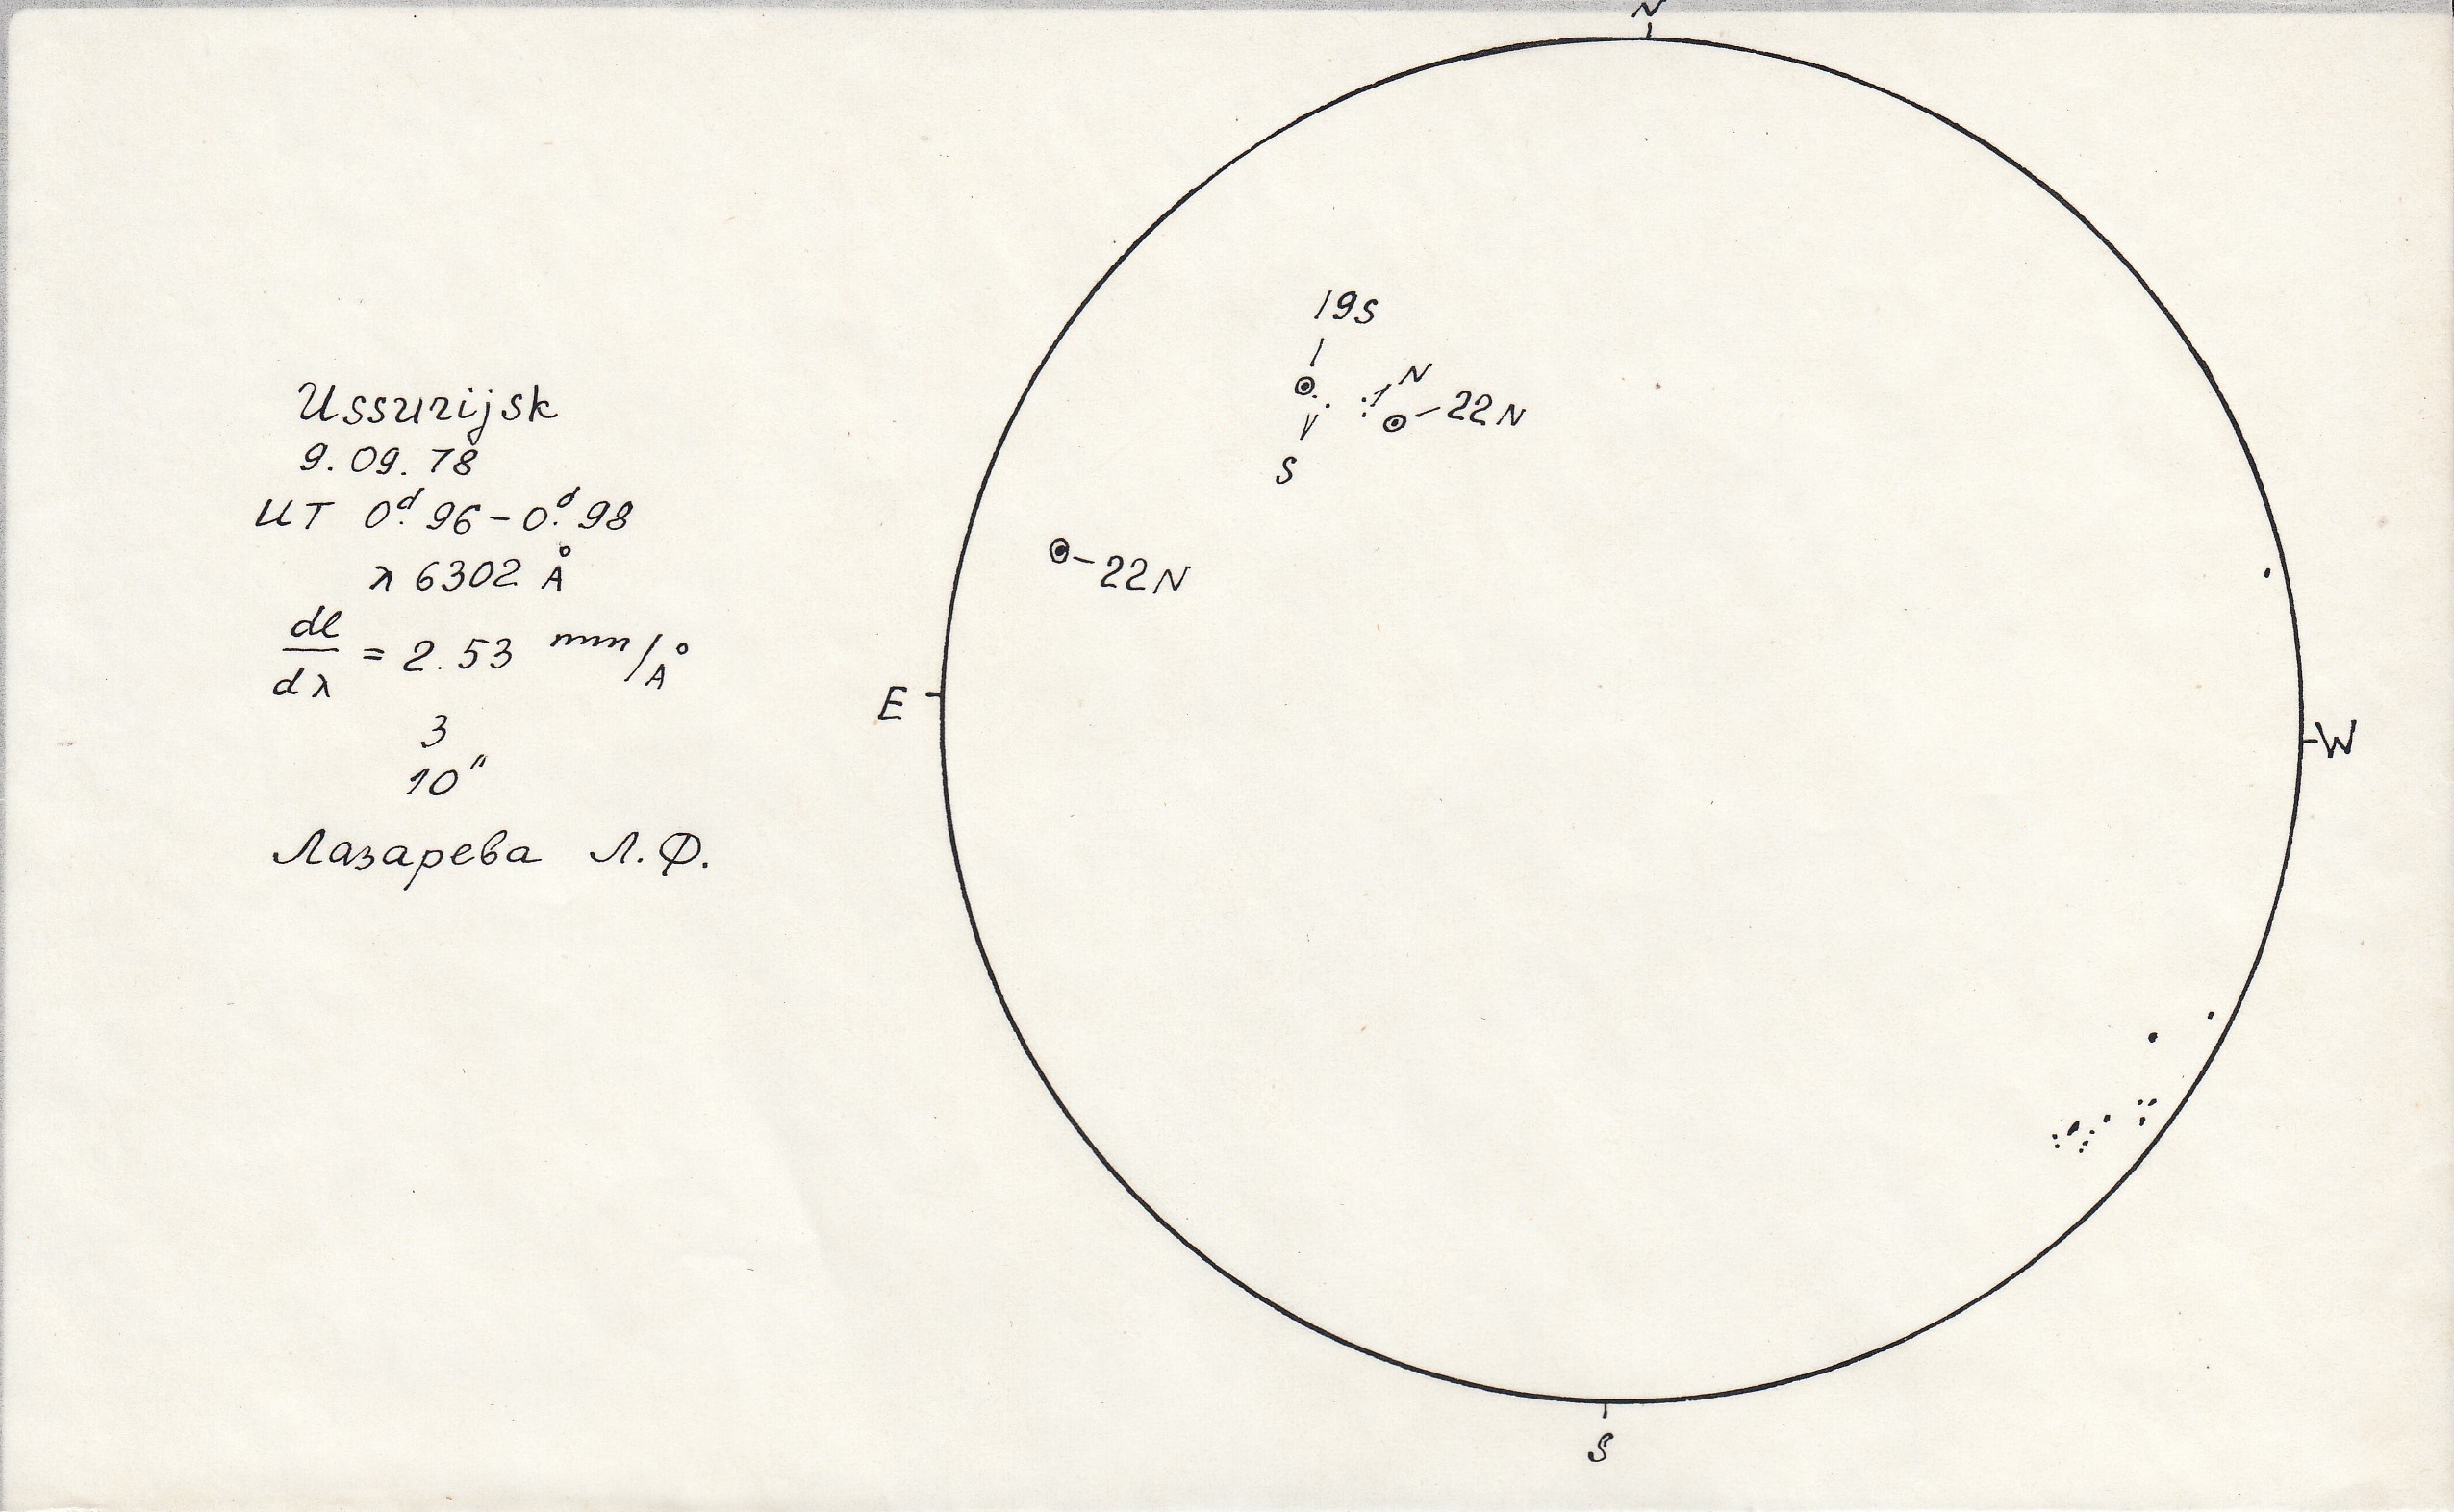 Ussurijsk
9.09.78
UT 0.ᵈ96-0.ᵈ98
λ 6302 Å
dl/dλ = 2.53 mm/Å
3
10"
Лазарева Л.Ф.
N
19S
N
22N
S
22N
E
W
S